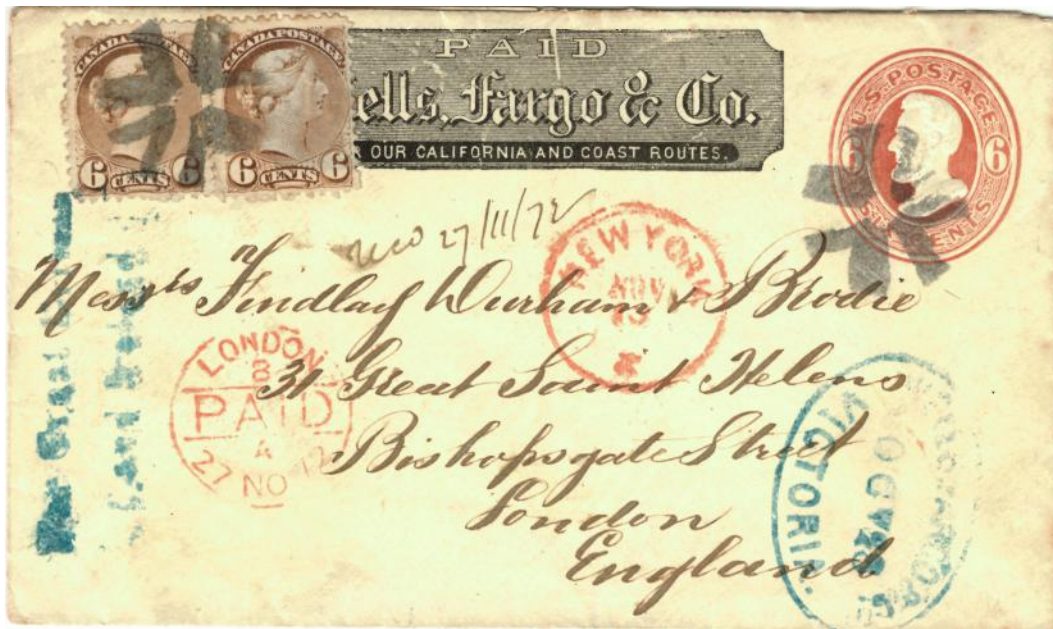 CANADA POSTAGE CANADA POSTAGE
6 CENTS 6 6 CENTS 6
PAID
ells, Fargo & Co.
R OUR CALIFORNIA AND COAST ROUTES.
U.S. POSTAGE
6 6
SIX CENTS
27/11/72
NEW YORK
NOV
Messrs Findlay Durham & Brodie
31 Great Saint Helens
Bishopsgate Street
London
England
LONDON
PAID
27 NO 72
VICTORIA.